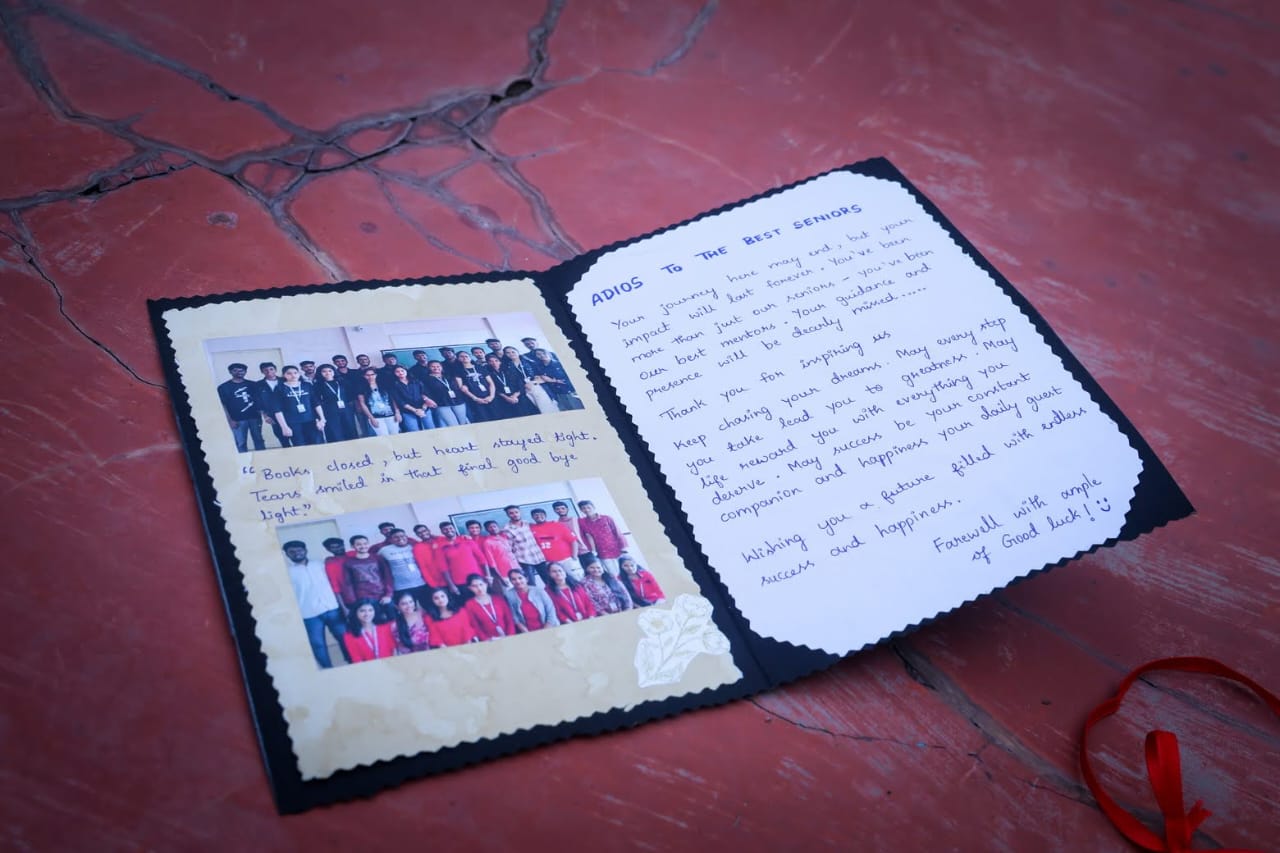 “Books closed, but heart stayed light.
Tears smiled in that final good bye
light.”
ADIOS TO THE BEST SENIORS
Your journey here may end, but your
impact will last forever. You've been
more than just our seniors - you've been
our best mentors. Your guidance and
presence will be dearly missed.....
Thank you for inspiring us
Keep chasing your dreams. May every step
you take lead you to greatness. May
life reward you with everything you
deserve. May success be your constant
companion and happiness your daily guest
Wishing you a future filled with endless
success and happiness.
Farewell with ample
of Good luck! :)